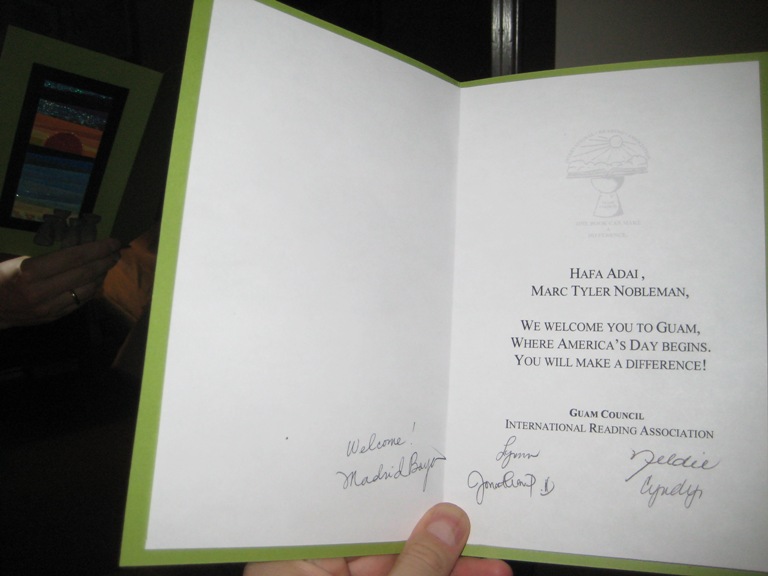 HAFA ADAI,
MARC TYLER NOBLEMAN,
WE WELCOME YOU TO GUAM,
WHERE AMERICA'S DAY BEGINS.
YOU WILL MAKE A DIFFERENCE!
GUAM COUNCIL
INTERNATIONAL READING ASSOCIATION
Welcome!
Madrid
Lynn